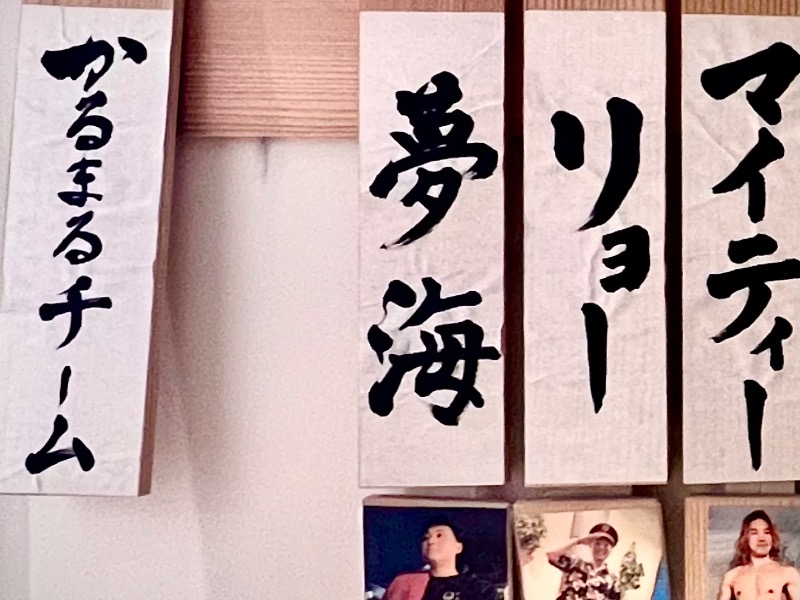 マイティー
リョー
夢海
かるまるチーム